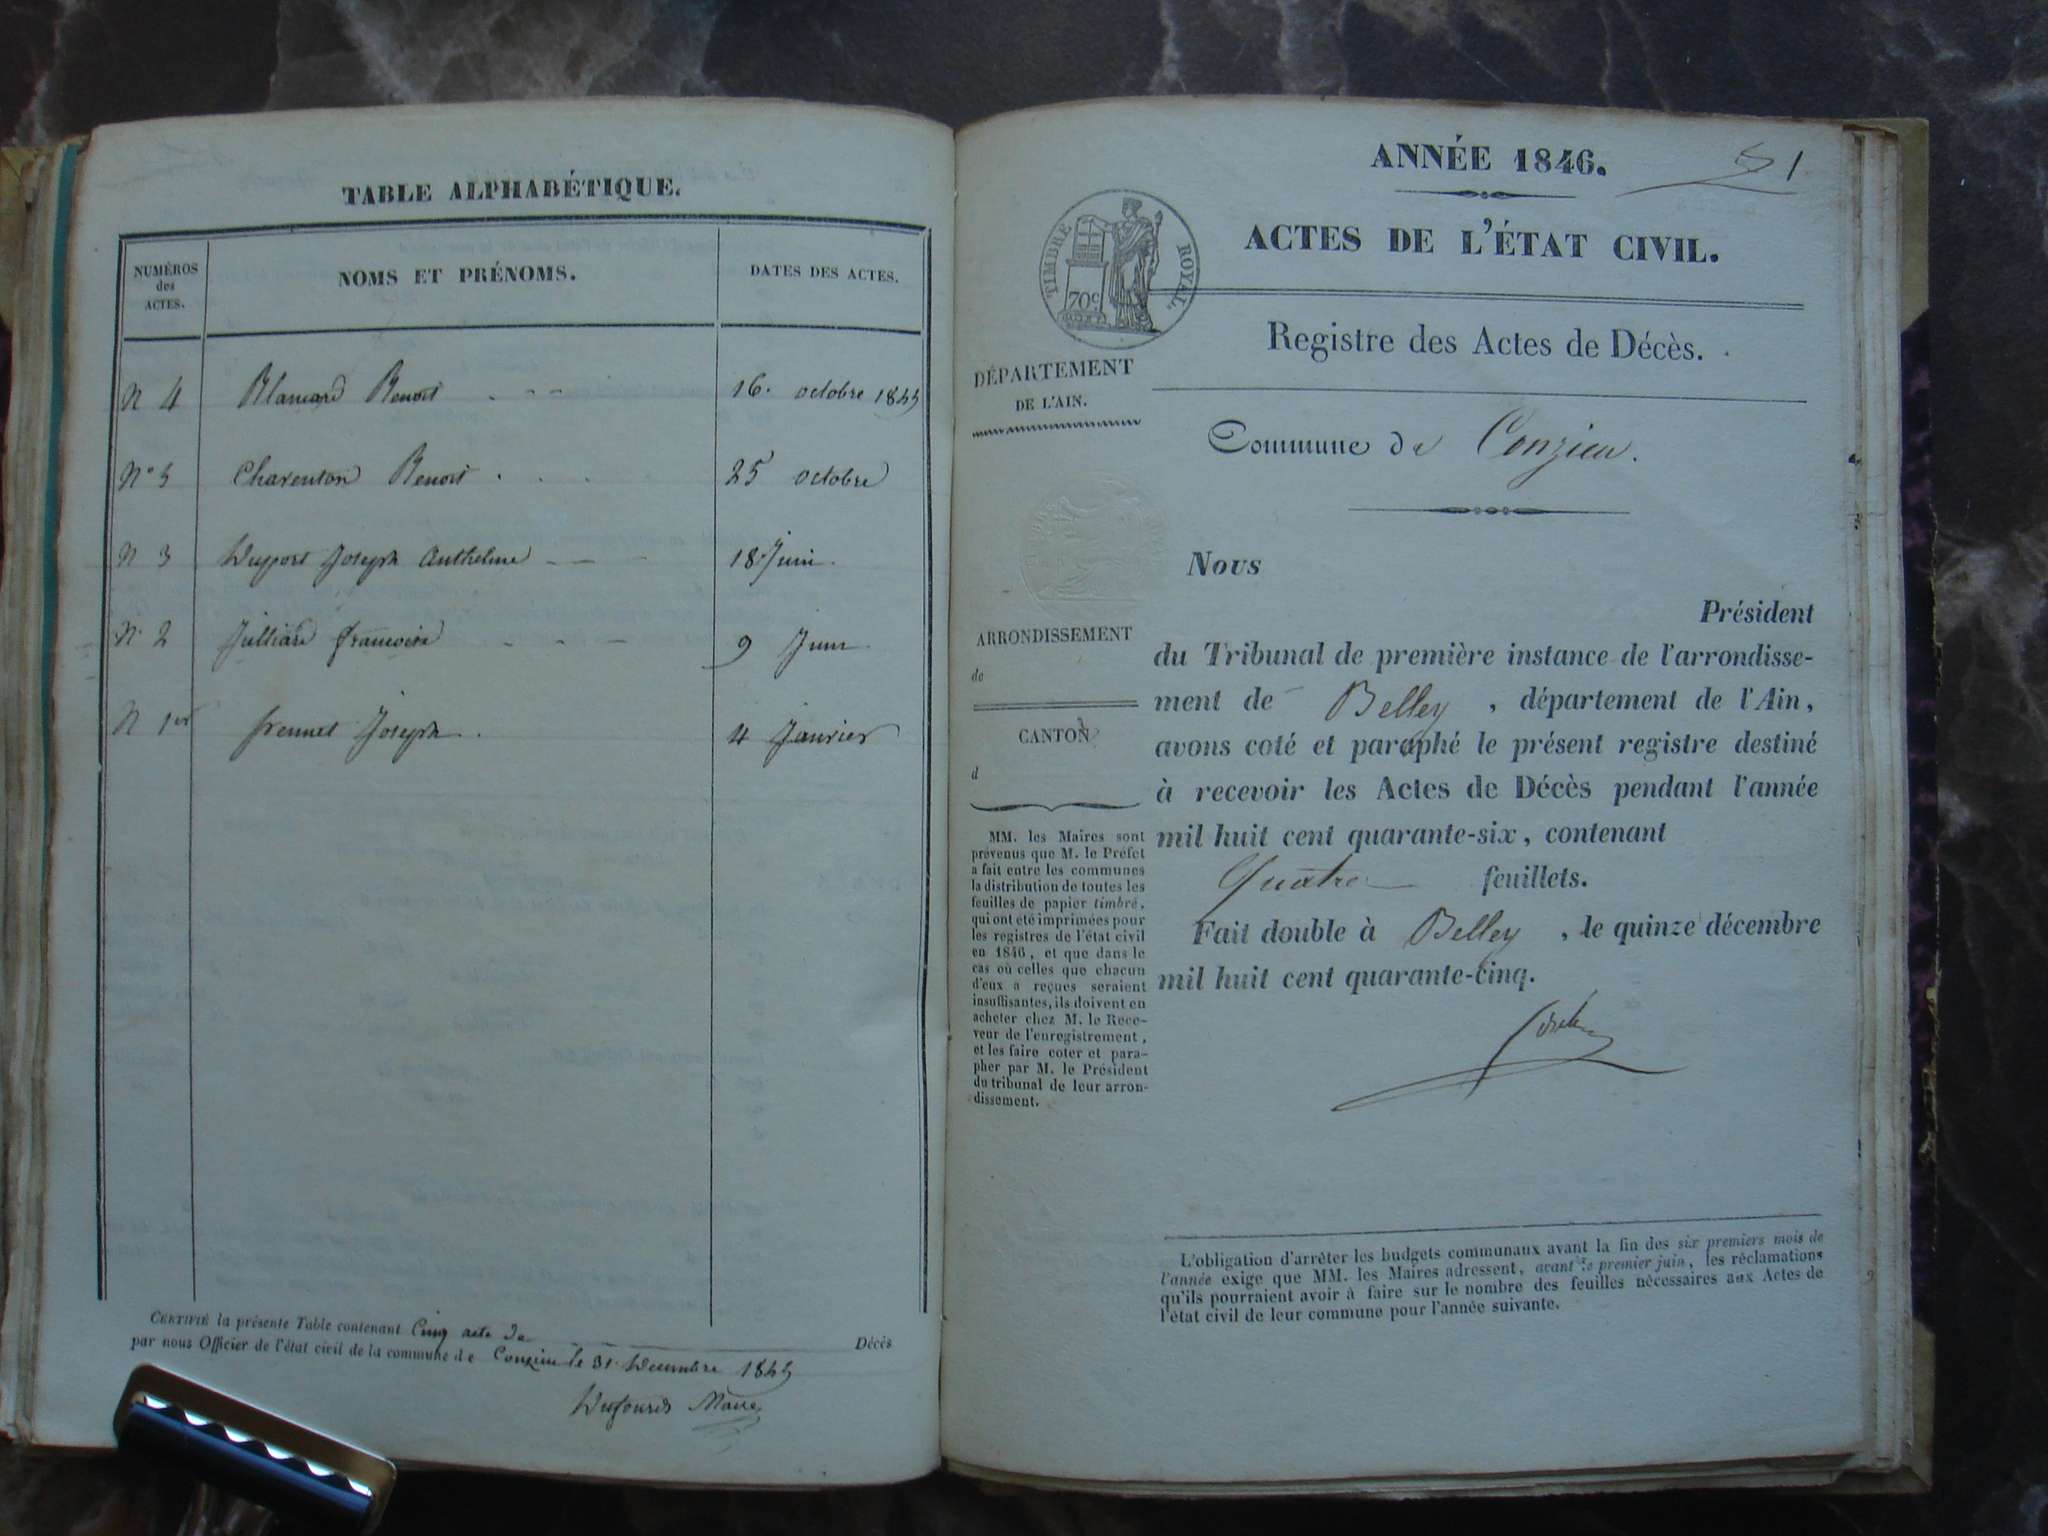 TABLE ALPHABÉTIQUE.
NUMÉROS
des
ACTES.
NOMS ET PRÉNOMS.
DATES DES ACTES.
N 4 Blancard Benoit 16. octobre 1845
N° 5 Charenton Benoit 25 octobre
N 3 Duport Joseph Anthelme 18 Juin
N. 2 Julliard françoise 9 Juin
N 1er Joseph 4 Janvier
CERTIFIÉ la présente Table contenant Cinq acte de Décès
par nous Officier de l'état civil de la commune de Conzieu le 31 Decembre 1845
Maire
ANNÉE 1846.
1
ACTES DE L'ÉTAT CIVIL.
TIMBRE ROYAL.
70c
Registre des Actes de Décès.
DÉPARTEMENT
DE L'AIN.
Commune de Conzieu.
ARRONDISSEMENT
de
CANTON
d
MM. les Maires sont
prévenus que M. le Préfet
a fait entre les communes
la distribution de toutes les
feuilles de papier timbré,
qui ont été imprimées pour
les registres de l'état civil
en 1846, et que dans le
cas où celles que chacun
d'eux a reçues seraient
insuffisantes, ils doivent en
acheter chez M. le Rece-
veur de l'enregistrement,
et les faire coter et para-
pher par M. le Président
du tribunal de leur arron-
dissement.
Nous
Président
du Tribunal de première instance de l'arrondisse-
ment de Belley, département de l'Ain,
avons coté et paraphé le présent registre destiné
à recevoir les Actes de Décès pendant l'année
mil huit cent quarante-six, contenant
Quatre feuillets.
Fait double à Belley, le quinze décembre
mil huit cent quarante-cinq.
L'obligation d'arrêter les budgets communaux avant la fin des six premiers mois de
l'année exige que MM. les Maires adressent, avant le premier juin, les réclamations
qu'ils pourraient avoir à faire sur le nombre des feuilles nécessaires aux Actes de
l'état civil de leur commune pour l'année suivante.